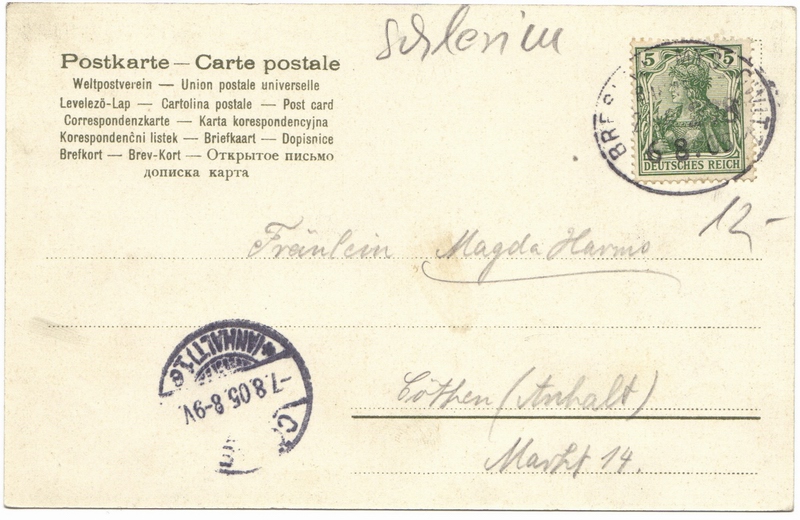 Schlesien
Postkarte — Carte postale
Weltpostverein — Union postale universelle
Levelező-Lap — Cartolina postale — Post card
Correspondenzkarte — Karta korespondencyjna
Korespondenčni listek — Briefkaart — Dopisnice
Brefkort — Brev-Kort — Открытое письмо
дописка карта
5 5
DEUTSCHES REICH
BRES
6 8
12,-
Fräulein Magda
(ANHALT) 1c
-7.8.05.8-9V.
Cöthen (Anhalt)
Markt 14.